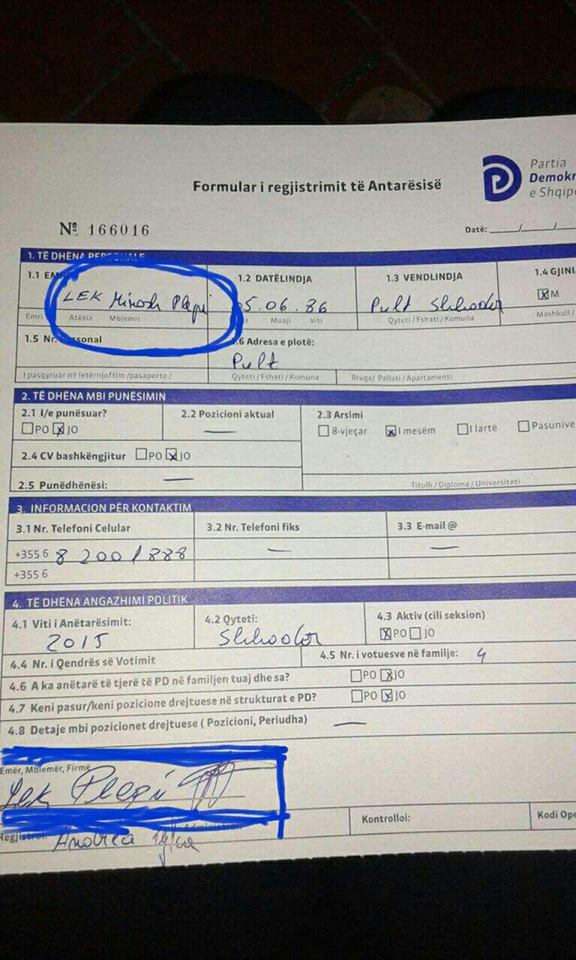 Partia
Demokr
e Shqipë
Formular i regjistrimit të Antarësisë
Nº 166016
Datë: ___/___/
1. TË DHËNA PERSONALE
1.1 EM 1.2 DATËLINDJA 1.3 VENDLINDJA 1.4 GJINI
LEK Plepi 5.06.86 Pult Shkoder M
Emri Atësia Mbiemri Muaji Viti Qyteti/Fshati/Komuna Mashkull/
1.5 Nr. Personal 1.6 Adresa e plotë:
Pult
I pasqyruar në letërnjoftim /pasaporte/ Qyteti/Fshati/Komuna Rruga/ Pallati/Apartamenti
2. TË DHËNA MBI PUNËSIMIN
2.1 I/e punësuar? 2.2 Pozicioni aktual 2.3 Arsimi
PO JO — 8-vjeçar I mesëm I lartë Pasunive
2.4 CV bashkëngjitur PO JO
2.5 Punëdhënësi: — Titulli/Diploma/Universiteti
3. INFORMACION PËR KONTAKTIM
3.1 Nr. Telefoni Celular 3.2 Nr. Telefoni fiks 3.3 E-mail @
+355 6 8 2001888 — —
+355 6
4. TË DHËNA ANGAZHIMI POLITIK
4.1 Viti i Anëtarësimit: 4.2 Qyteti: 4.3 Aktiv (cili seksion)
2015 Shkoder PO JO
4.4 Nr. i Qendrës së Votimit 4.5 Nr. i votuesve në familje: 4
4.6 A ka anëtarë të tjerë të PD në familjen tuaj dhe sa? PO JO
4.7 Keni pasur/keni pozicione drejtuese në strukturat e PD? PO JO
4.8 Detaje mbi pozicionet drejtuese ( Pozicioni, Periudha) —
Emër, Mbiemër, Firmë
Lek Plepi
Kontrolloi: Kodi Ope
Regjistroi: Andrea